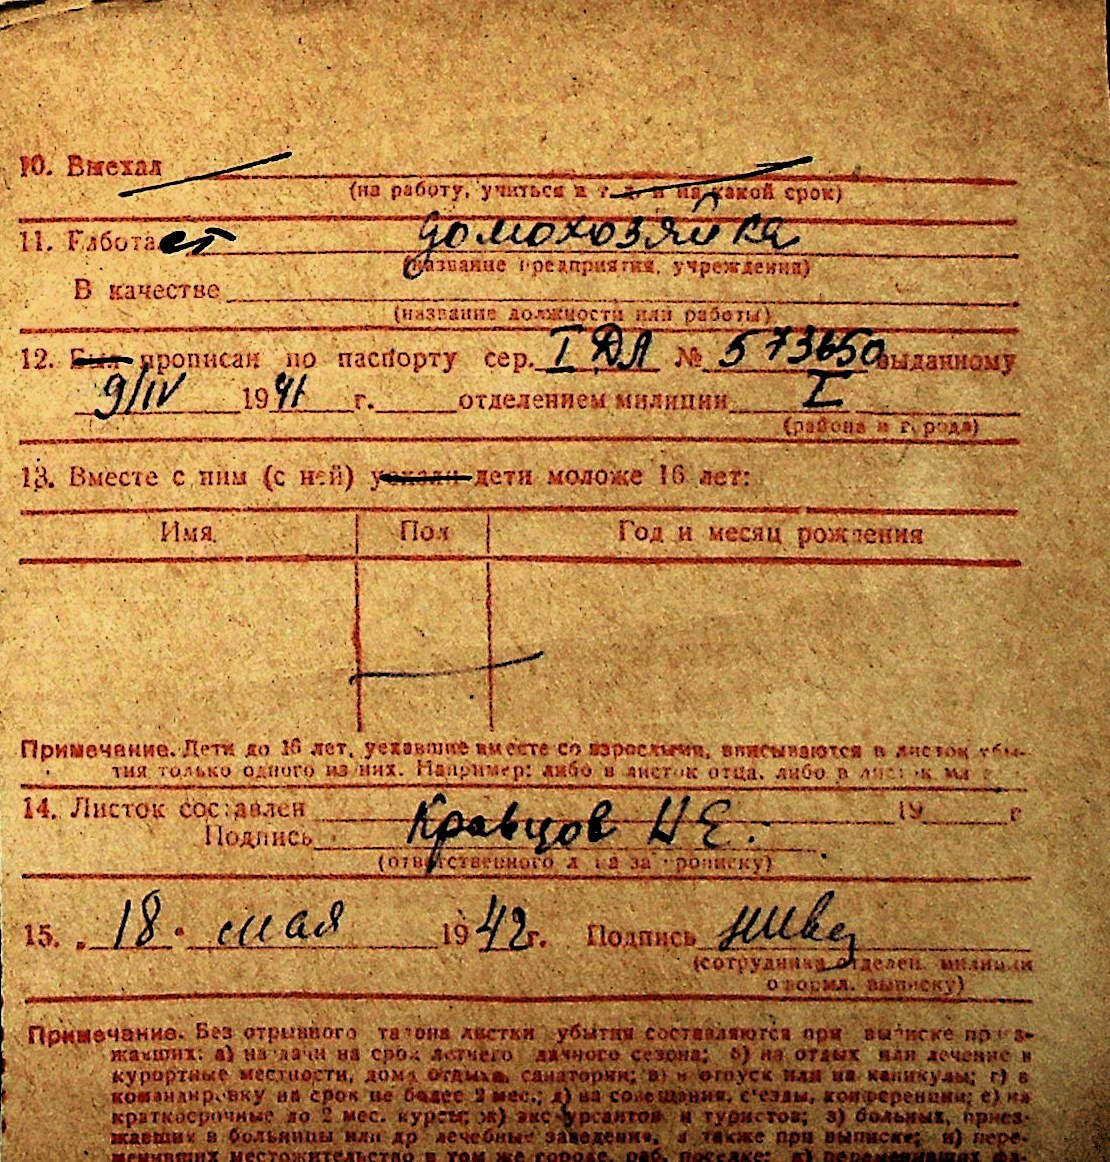 10. Выехал
(на работу, учиться и т. д. и на какой срок)
11. Работает домохозяйка
(название предприятия, учреждения)
В качестве
(название должности или работы)
12. Был прописан по паспорту сер. I ДЛ № 573650 выданному
9/IV 1941 г. отделением милиции I
(района и города)
13. Вместе с ним (с ней) уехали дети моложе 16 лет:
Имя Пол Год и месяц рождения
Примечание. Дети до 16 лет, уехавшие вместе со взрослыми, вписываются в листок убы-
тия только одного из них. Например: либо в листок отца, либо в листок
14. Листок составлен 19 г
Подпись Кравцов Н Е.
(ответственного лица за прописку)
15. „18" мая 1942 г. Подпись
(сотрудника отделен. милиции
оформл. выписку)
Примечание. Без отрывного талона листки убытия составляются при выписке приез-
жавших: а) на дачи на срок летнего дачного сезона; б) на отдых или лечение в
курортные местности, дома отдыха, санатории; в) в отпуск или на каникулы; г) в
командировку на срок не более 2 мес.; д) на совещания, съезды, конференции; е) на
краткосрочные до 2 мес. курсы; ж) экскурсантов и туристов; з) больных, приез-
жавших в больницы или др лечебные заведения, а также при выписке; и) пере-
менивших местожительство в том же городе, раб. поселке; к) переменивших